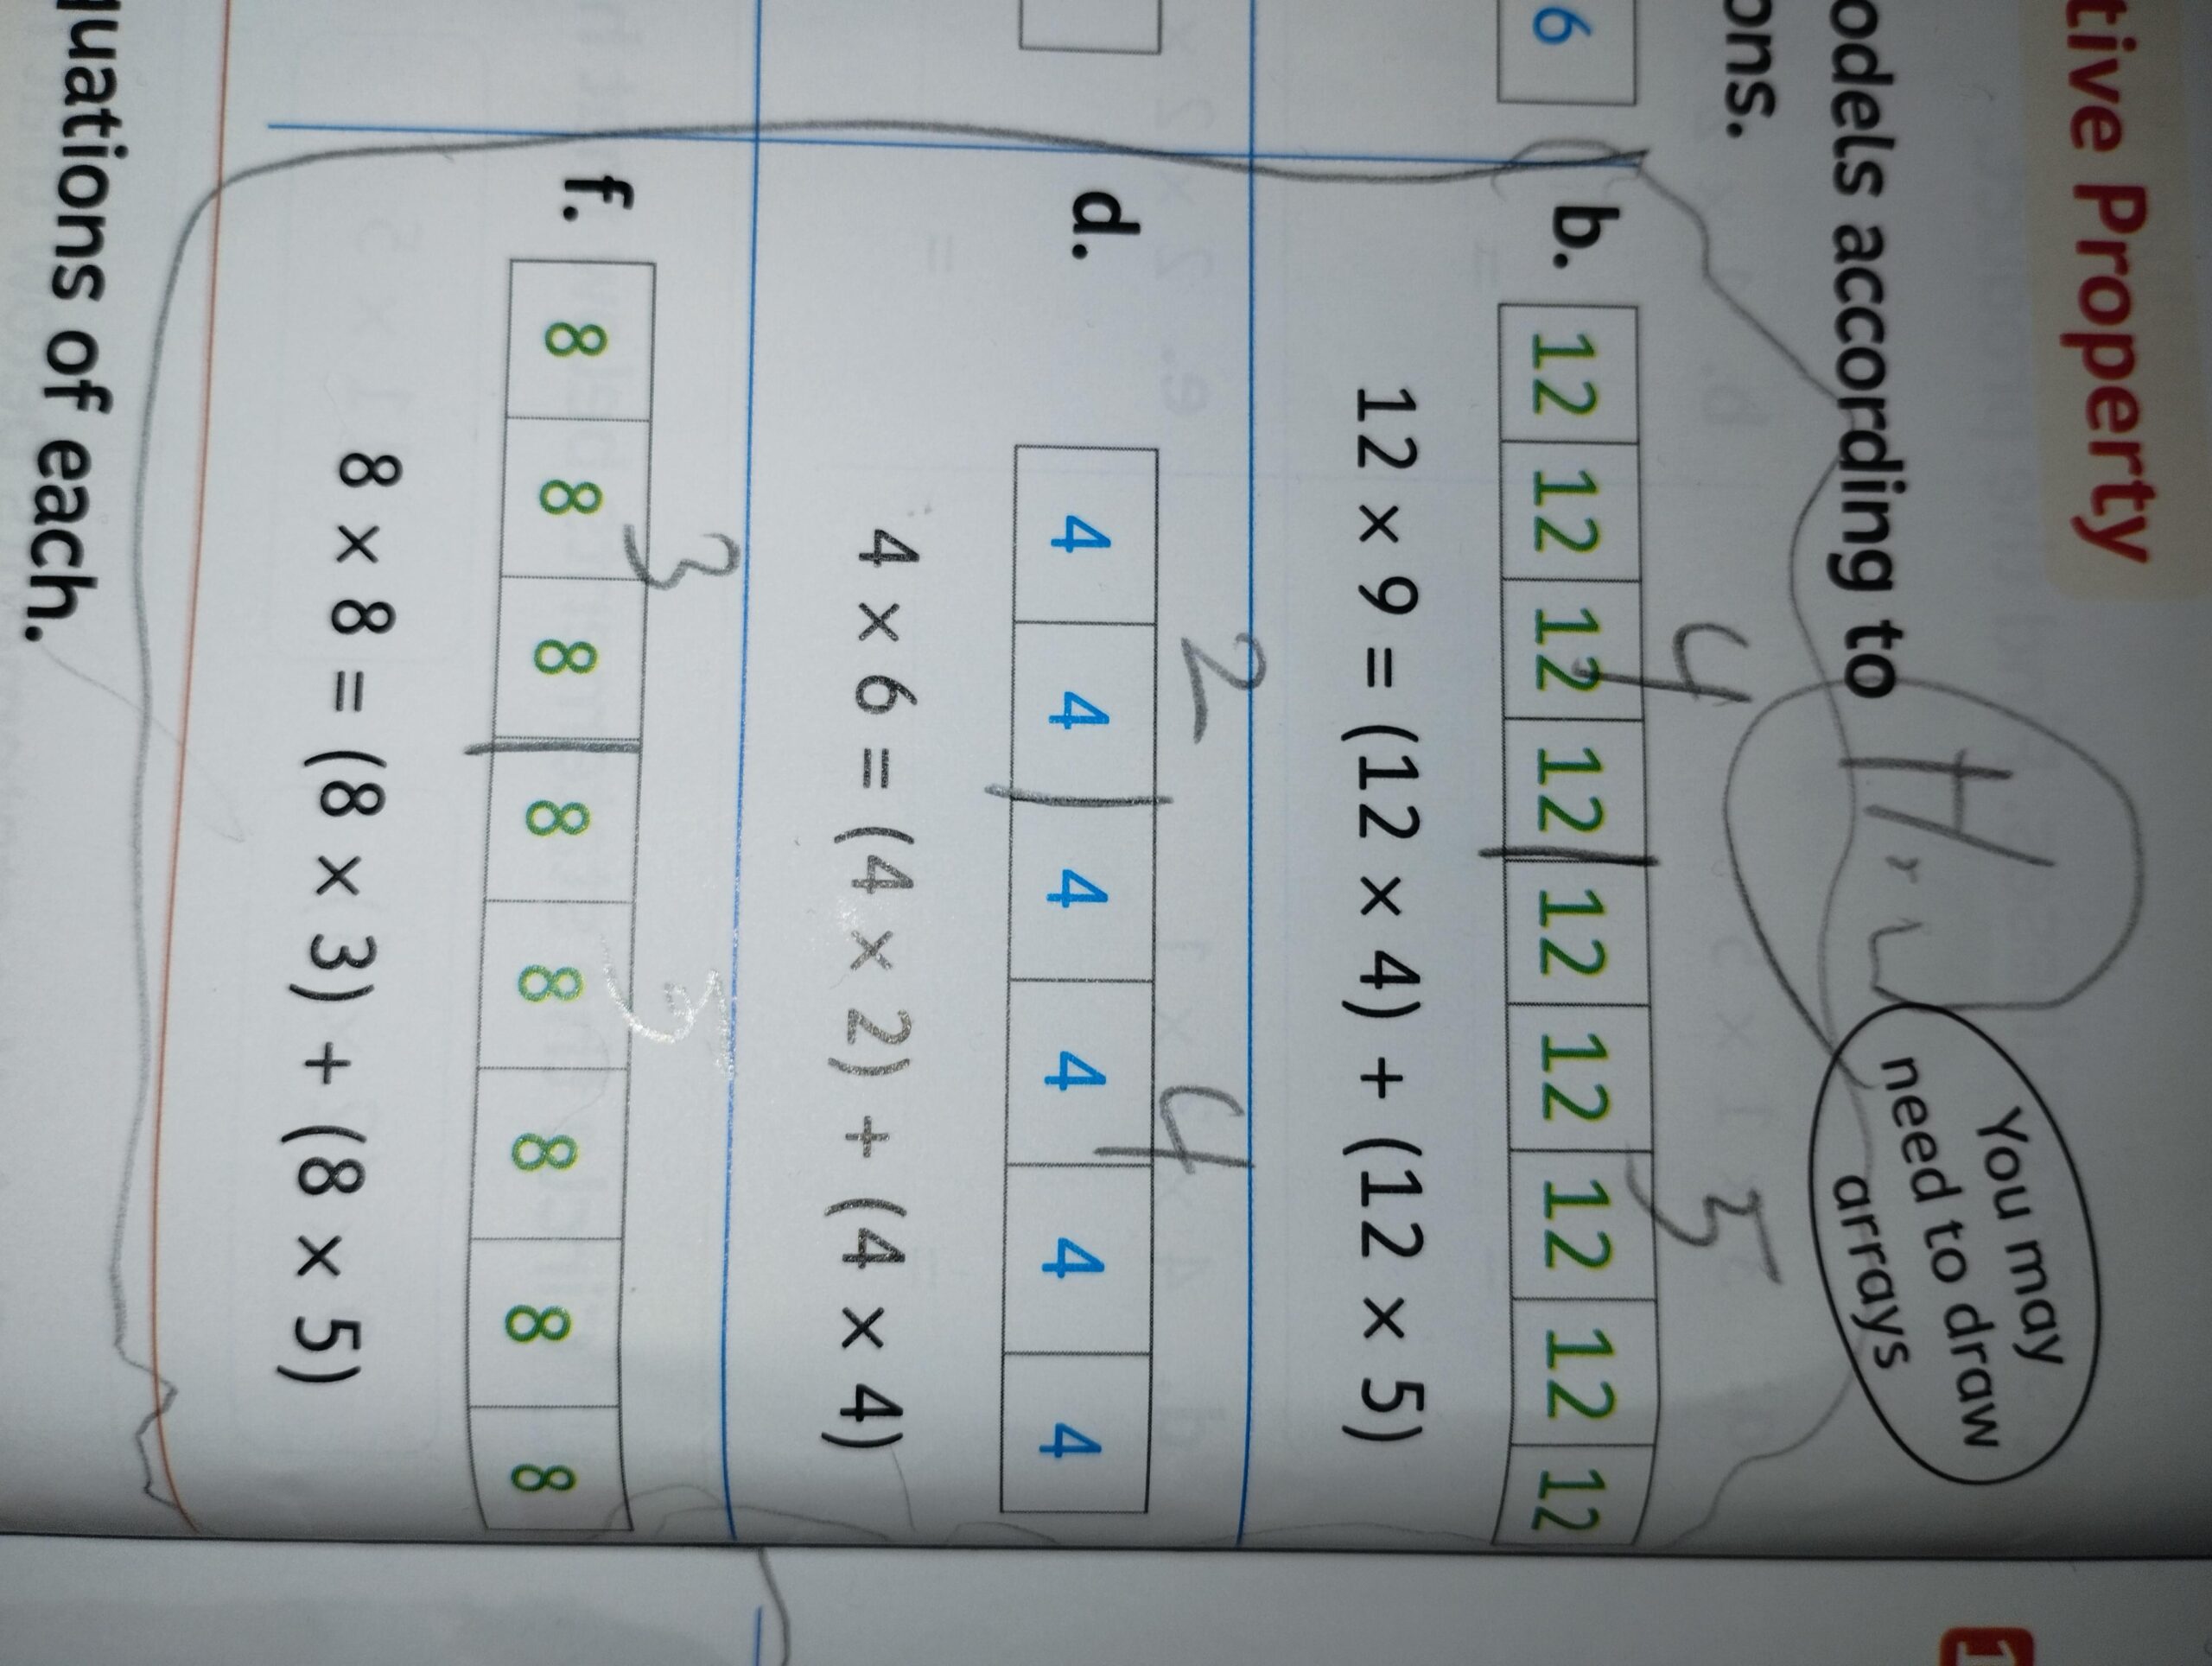 tive Property
odels according to
ons.
H.w
You may
need to draw
arrays
6
4
5
b. 12 12 12 12 12 12 12 12 12
12 × 9 = (12 × 4) + (12 × 5)
2
4
d. 4 4 4 4 4 4
4 × 6 = (4 × 2) + (4 × 4)
3
5
f. 8 8 8 8 8 8 8 8
8 × 8 = (8 × 3) + (8 × 5)
quations of each.
1